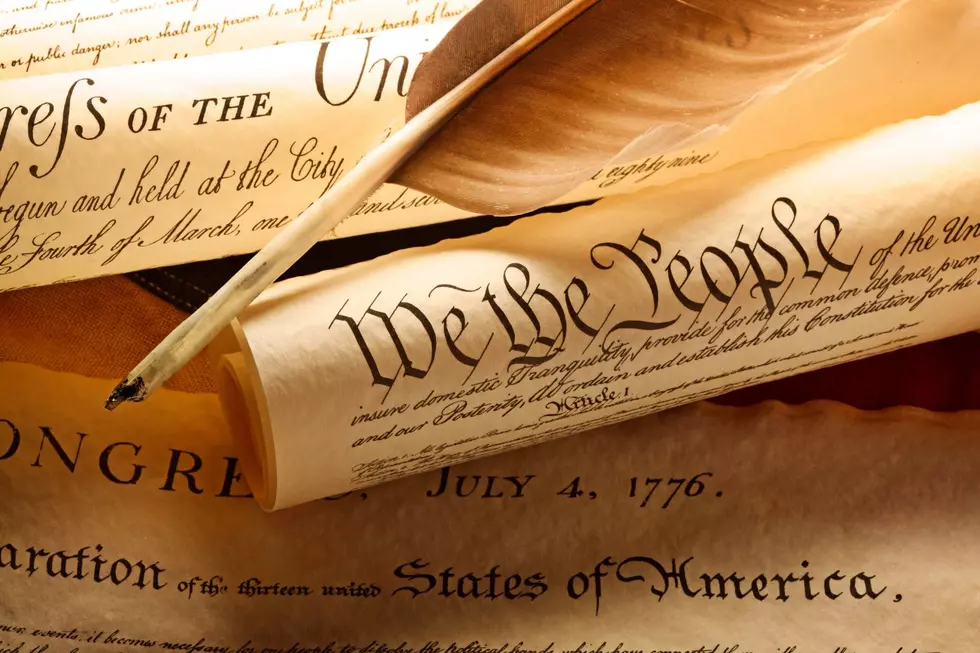 otherwise infamous crime,
r or public danger; nor shall any person be subject for
without due process of law
reſs OF THE Uni
begun and held at the City
e Fourth of March, one and sev eighty nine
We the People of the Un
insure domestic Tranquility, provide for the common defence, prom
and our Posterity, do ordain and establish this Constitution for the
Article. I.
ONGRE , JULY 4, 1776.
aration of the thirteen united States of America,
events, it becomes necessary for one people to dissolve the political bands which have connected them with another